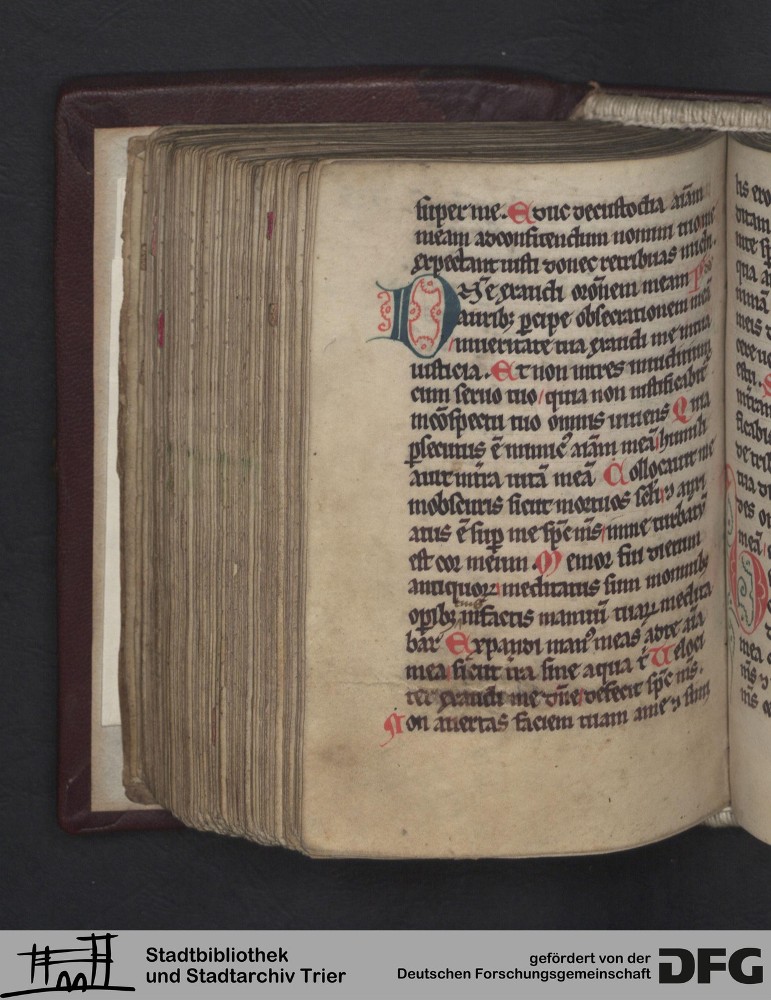 super me. Educ decustodia aīam
meam adconfitendum nomini tuo me
expectant iusti donec retribuas michi.
Dn̄e exaudi orōnem meam
auribꝫ ꝑcipe obsecrationem meā
inueritate tua exaudi me intua
iusticia. Et non intres iniudicium
cum seruo tuo/ quia non iustificabit᷑
incōspectu tuo omnis uiuens Quia
ꝑsecutus ē inimicꝰ aīam meā/humili
auit in t̄ra uitā meā Collocauit me
inobscuris sicut mortuos sc̄li/⁊ anxi
atus ē suꝑ me sp̄c m̄s/inme turbatū
est cor meum Memor fui dierum
antiquoꝝ/meditatus sum inomnibꝫ
opibꝫ tuis infactis manuū tuaꝝ medita
bar Expandi manꝰ meas adte aīa
mea/sicut t̄ra sine aqua t̄ Veloci
ter exaudi me dn̄e/defecit sp̄c m̄s.
Non auertas faciem tuam ame ⁊ sim
Stadtbibliothek
und Stadtarchiv Trier
gefördert von der
Deutschen Forschungsgemeinschaft
DFG